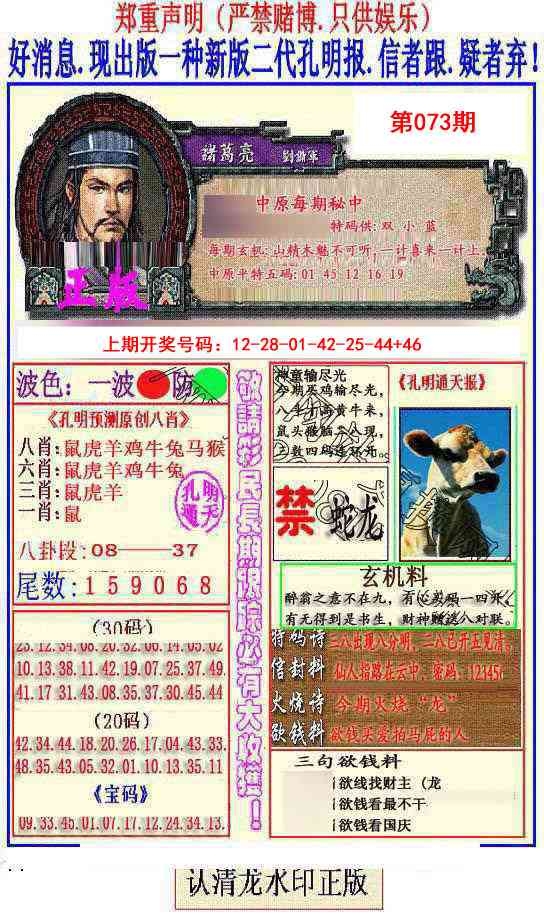 郑重声明（严禁赌博.只供娱乐）
好消息.现出版一种新版二代孔明报.信者跟.疑者弃!
第073期
諸葛亮
中原每期秘中
特码供: 双 小 蓝
每期玄机: 山精木魅不可听,一计喜来一计上.
中原平特五码: 01 45 12 16 19
正版
上期开奖号码：12-28-01-42-25-44+46
波色：一波 防
《孔明预测原创八肖》
八肖: 鼠虎羊鸡牛兔马猴
六肖: 鼠虎羊鸡牛兔
三肖: 鼠虎羊
一肖: 鼠
孔明
通天
八卦段: 08——37
尾数: 159068
敬請彩民長期跟踪必有大收獲！
神童输尽光
今期买鸡输尽光,
《孔明通天报》
禁
蛇龙
玄机料
醉翁之意不在九，
有无得到是书生，财神赠送八对联。
(30码)
23.12.34.08.20.32.06.14.05.02
10.13.38.11.42.19.07.25.37.49.
41.17.31.43.08.35.37.30.45.44
(20码)
42.34.44.18.20.26.17.04.43.33.
48.35.43.05.32.01.10.13.35.11
《宝码》
09.33.45.01.07.17.12.24.34.13.
特码诗 二八出现八分明，二八已开五见清。
信封料 仙人指路在云中，密码：12345
火烧诗 今期火烧“龙”
欲钱料 欲钱买爱拍马屁的人
三句欲钱料
欲线找财主（龙
欲钱看最不干
欲钱看国庆
认清龙水印正版